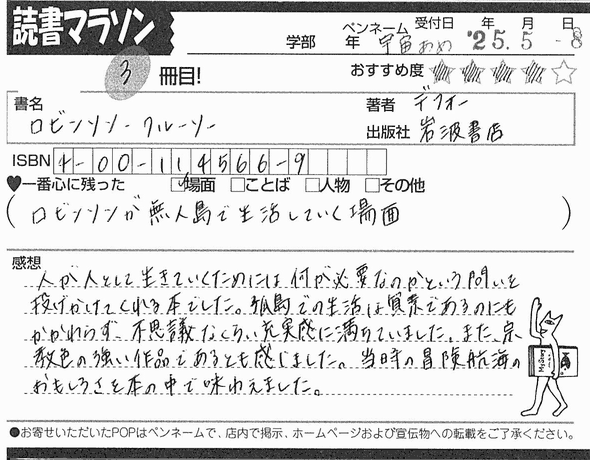 読書マラソン
学部 年 ペンネーム 宇宙あめ 受付日 年 月 日 '25.5.-8
3 冊目! おすすめ度 ★★★★☆
書名 ロビンソン・クルーソー
著者 デフォー
出版社 岩波書店
ISBN 4-00-114566-9
♥一番心に残った ☑場面 □ことば □人物 □その他
(ロビンソンが無人島で生活していく場面)
感想
人が人として生きていくためには何が必要なのかという問いを
投げかけてくれる本でした。孤島での生活は質素であるのにも
かかわらず、不思議なくらい充実感に満ちていました。また、宗
教色の強い作品であるとも感じました。当時の冒険航海の
おもしろさを本の中で味わえました。
●お寄せいただいたPOPはペンネームで、店内で掲示、ホームページおよび宣伝物への転載をご了承ください。